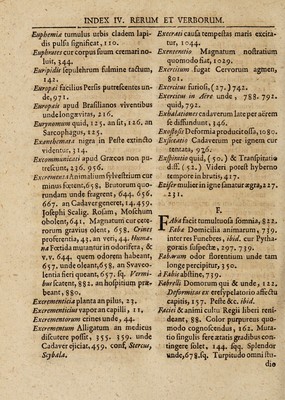 INDEX IV. RERUM ET VERBORUM.
Euphemiæ tumulus urbis cladem lapi-
dis pulsu significat, 110.
Euphrates cur corpus suum cremari no-
luit, 344.
Euripidis sepulchrum fulmine tactum,
142.
Europæi facilius Persis putrescentes un-
de, 971.
Europæis apud Brasilianos viventibus
unde longævitas, 216.
Eurynomum quid, 125. an sit, 126. an
Sarcophagus, 125.
Exanthemata nigra in Peste extincto
videntur, 314.
Excommunicati apud Græcos non pu-
trescunt, 236. 956.
Excrementa Animalium sylvestrium cur
minus fœtent, 658. Brutorum quo-
rundam unde fragrent, 644. 656.
667. an Cadaver generet, 14. 459.
Josephi Scalig. Rosam, Moschum
obolent, 641. Magnatum cur cete-
rorum gravius olent, 658. Crines
proferentia, 43. an veri, 44. Huma-
na Fœtida mutantur in odorifera, &
v. v. 644. quem odorem habeant,
657. unde oleant, 658. an Svaveo-
lentia fieri queant, 657. sq. Vermi-
bus scatent, 882. an hospitium præ-
beant, 880.
Excrementitia planta an pilus, 23.
Excrementicius vapor an capilli, 11.
Excrementorum crines unde, 44.
Excrementum Alligatum an medicus
discutere possit, 355. 359. unde
Cadaver ejiciat, 459. conf. Stercus,
Scybala.
Execrati causa tempestas maris excita-
tur, 1044.
Exenteratio Magnatum nostratium
quomodo fiat, 1029.
Exercitum fugat Cervorum agmen,
801.
Exercitus furiosi, (27.) 742.
Exercitus in Aëre unde, 788. 792.
quid, 792.
Exhalationes cadaverum late per aërem
se diffundunt, 346.
Exostosis Deformia producit ossa, 1080.
Expiratio Cadaverum per ignem cur
tentata, 926.
Exspiratio quid, (50.) & Transpiratio
diff. (52.) Videri potest hyberno
tempore in brutis, 417.
Ezifer mulier in igne sanatur ægra, 227.
231.
F.
Faba facit tumultuosa somnia, 822.
Faba Domicilia animarum, 739.
inter res Funebres, ibid. cur Pytha-
goræis suspectæ, 297. 739.
Fabarum odor florentium unde tam
longe percipitur, 350.
à Fabis abstine, 739.
Fabrelli Domorum qui & unde, 122.
Deformitas ex crepellatorio affectu
capitis, 157. Peste &c. ibid.
Facies & animi cultu Regii liberi reni-
deant, 88. Color purpureus quo-
modo cognoscendus, 162. Muta-
tio singulis fere ætatis gradibus con-
tingere solet, 144. sqq. Splendor
unde, 678. sq. Turpitudo omni stu-
dio